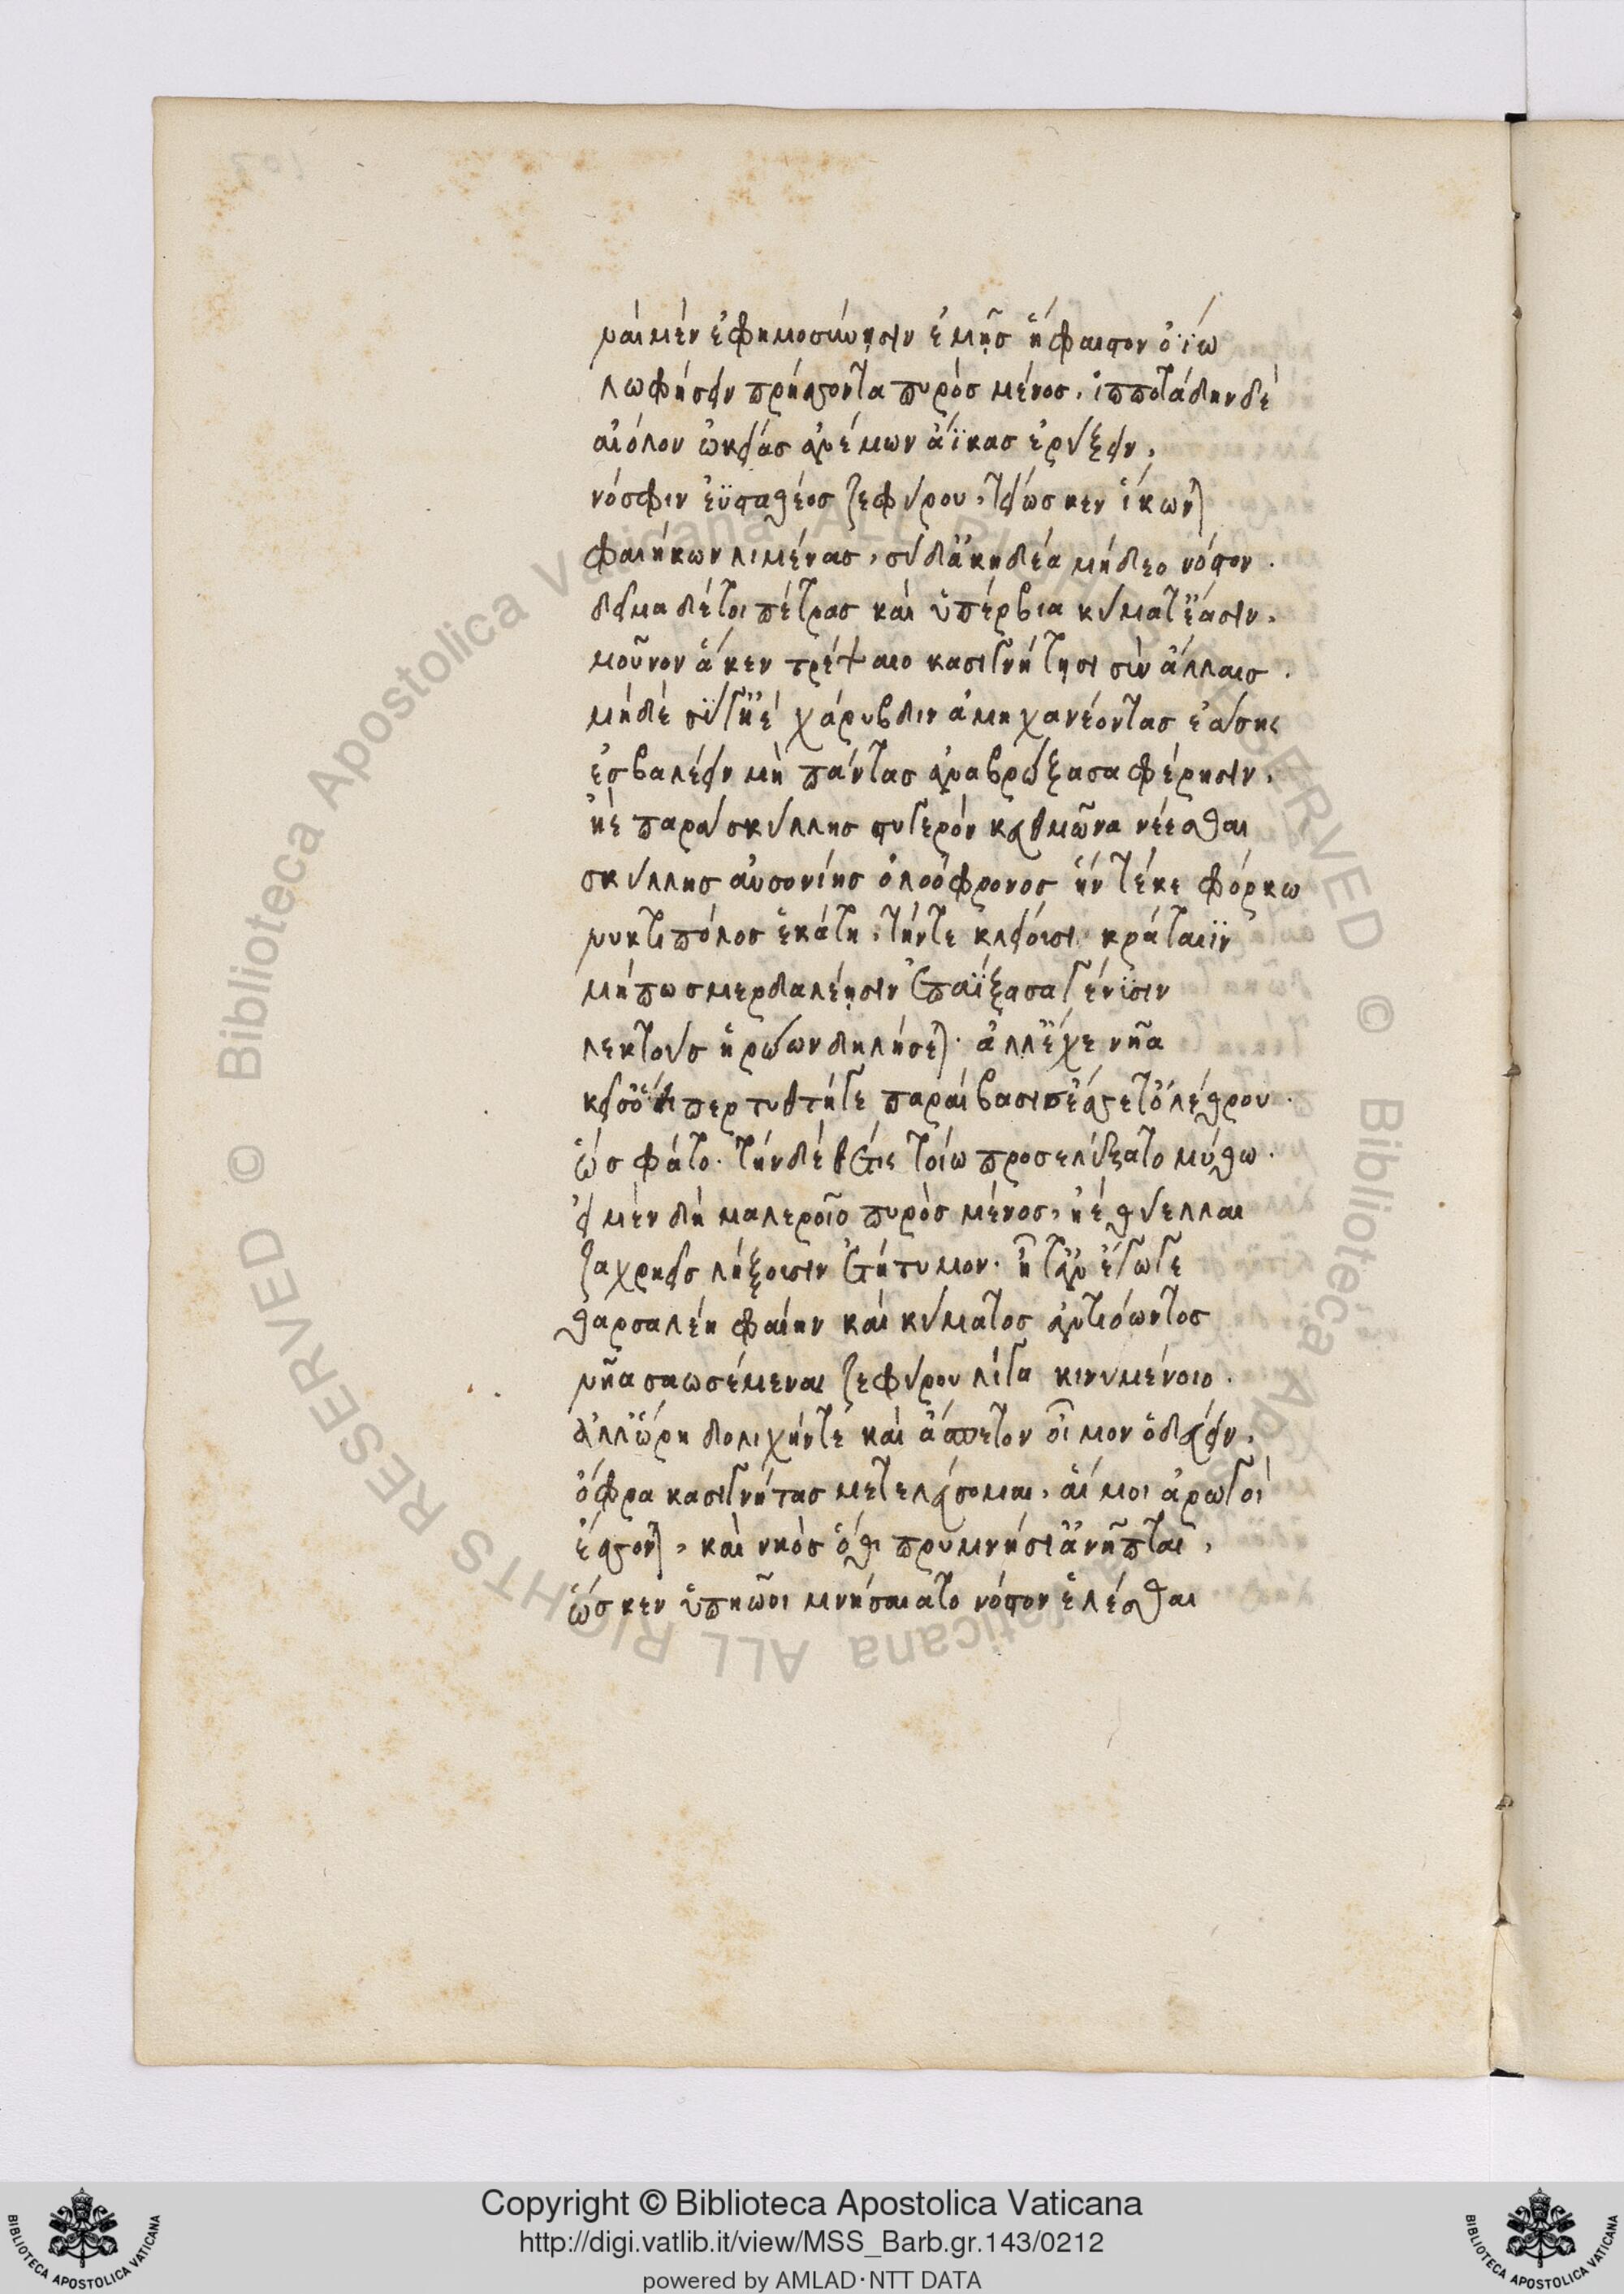 ναὶ μὲν ἐφημοσύνῃσιν ἐμῇσ ἥφαιστον ὀΐω
λωφήσειν πρήσσοντα πυρὸσ μένοσ, ἱπποτάδην δὲ
αἰόλον ὠκείασ ἀνέμων ἄϊκασ ἐρύξειν,
νόσφιν ἐϋσταθέοσ ζεφύρου, τείωσ κεν ἵκωνται
φαιήκων λιμένασ, σὺ δ' ἀκηδέα μήδεο νόστον.
δεῖμα δέ τοι πέτραι καὶ ὑπέρβια κύματ' ἔασιν,
μοῦνον ἅ κεν τρέψαιο κασιγνήτῃσι σὺν ἄλλαισ.
μηδὲ σύ γ' ἠὲ χάρυβδιν ἀμηχανέοντασ ἐάσῃς
ἐσβαλέειν μὴ πάντασ ἀναβρώξασα φέρῃσιν,
ἠὲ παρὰ σκύλλησ στυγερὸν κευθμῶνα νέεσθαι
σκύλλησ αὐσονίησ ὀλοόφρονοσ ἣν τέκε φόρκω
νυκτιπόλοσ ἑκάτη, τήν τε κλείουσι κράταιϊν
μή πω σμερδαλέῃσιν ἐπαΐξασα γένυσιν
λεκτοὺσ ἡρώων δηλήσεται. ἀλλ' ἔχε νῆα
κεῖσ' ὅθι περ τυτθή γε παραίβασισ ἔσσετ' ὀλέθρου.
ὣσ φάτο. τὴν δὲ θέτις τοίω προσελέξατο μύθω.
εἰ μὲν δὴ μαλεροῖο πυρὸσ μένοσ, ἠὲ θύελλαι
ζαχρηεῖσ λήξουσιν ἐτήτυμον. ἦ τ' ἂν ἔγωγε
θαρσαλέη φαίην καὶ κύματοσ ἀντιόωντοσ
νῆα σαωσέμεναι ζεφύρου λίγα κινυμένοιο.
ἀλλ' ὥρη δολιχήν τε καὶ ἄσπετον οἶμον ὁδεύειν,
ὄφρα κασιγνήτασ μετελεύσομαι, αἵ μοι ἀρωγοὶ
ἔσσονται, καὶ νηὸσ ὅθι πρυμνήσι' ἀνῆπται,
ὥσ κεν ὑπηῶοι μνησαίατο νόστον ἑλέσθαι
Copyright © Biblioteca Apostolica Vaticana
http://digi.vatlib.it/view/MSS_Barb.gr.143/0212
powered by AMLAD·NTT DATA